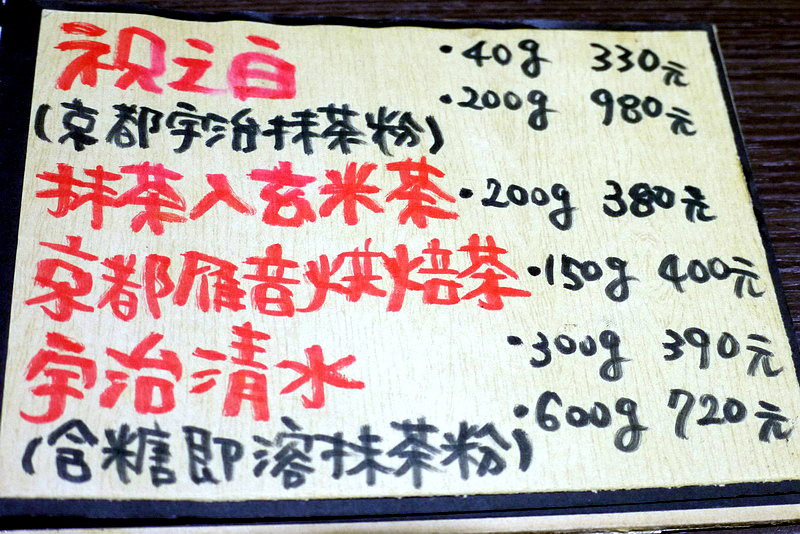 祝之白 ·40g 330元
(京都宇治抹茶粉) ·200g 980元
抹茶入玄米茶 ·200g 380元
京都雁音烘焙茶 ·150g 400元
宇治清水 ·300g 390元
(含糖即溶抹茶粉) ·600g 720元